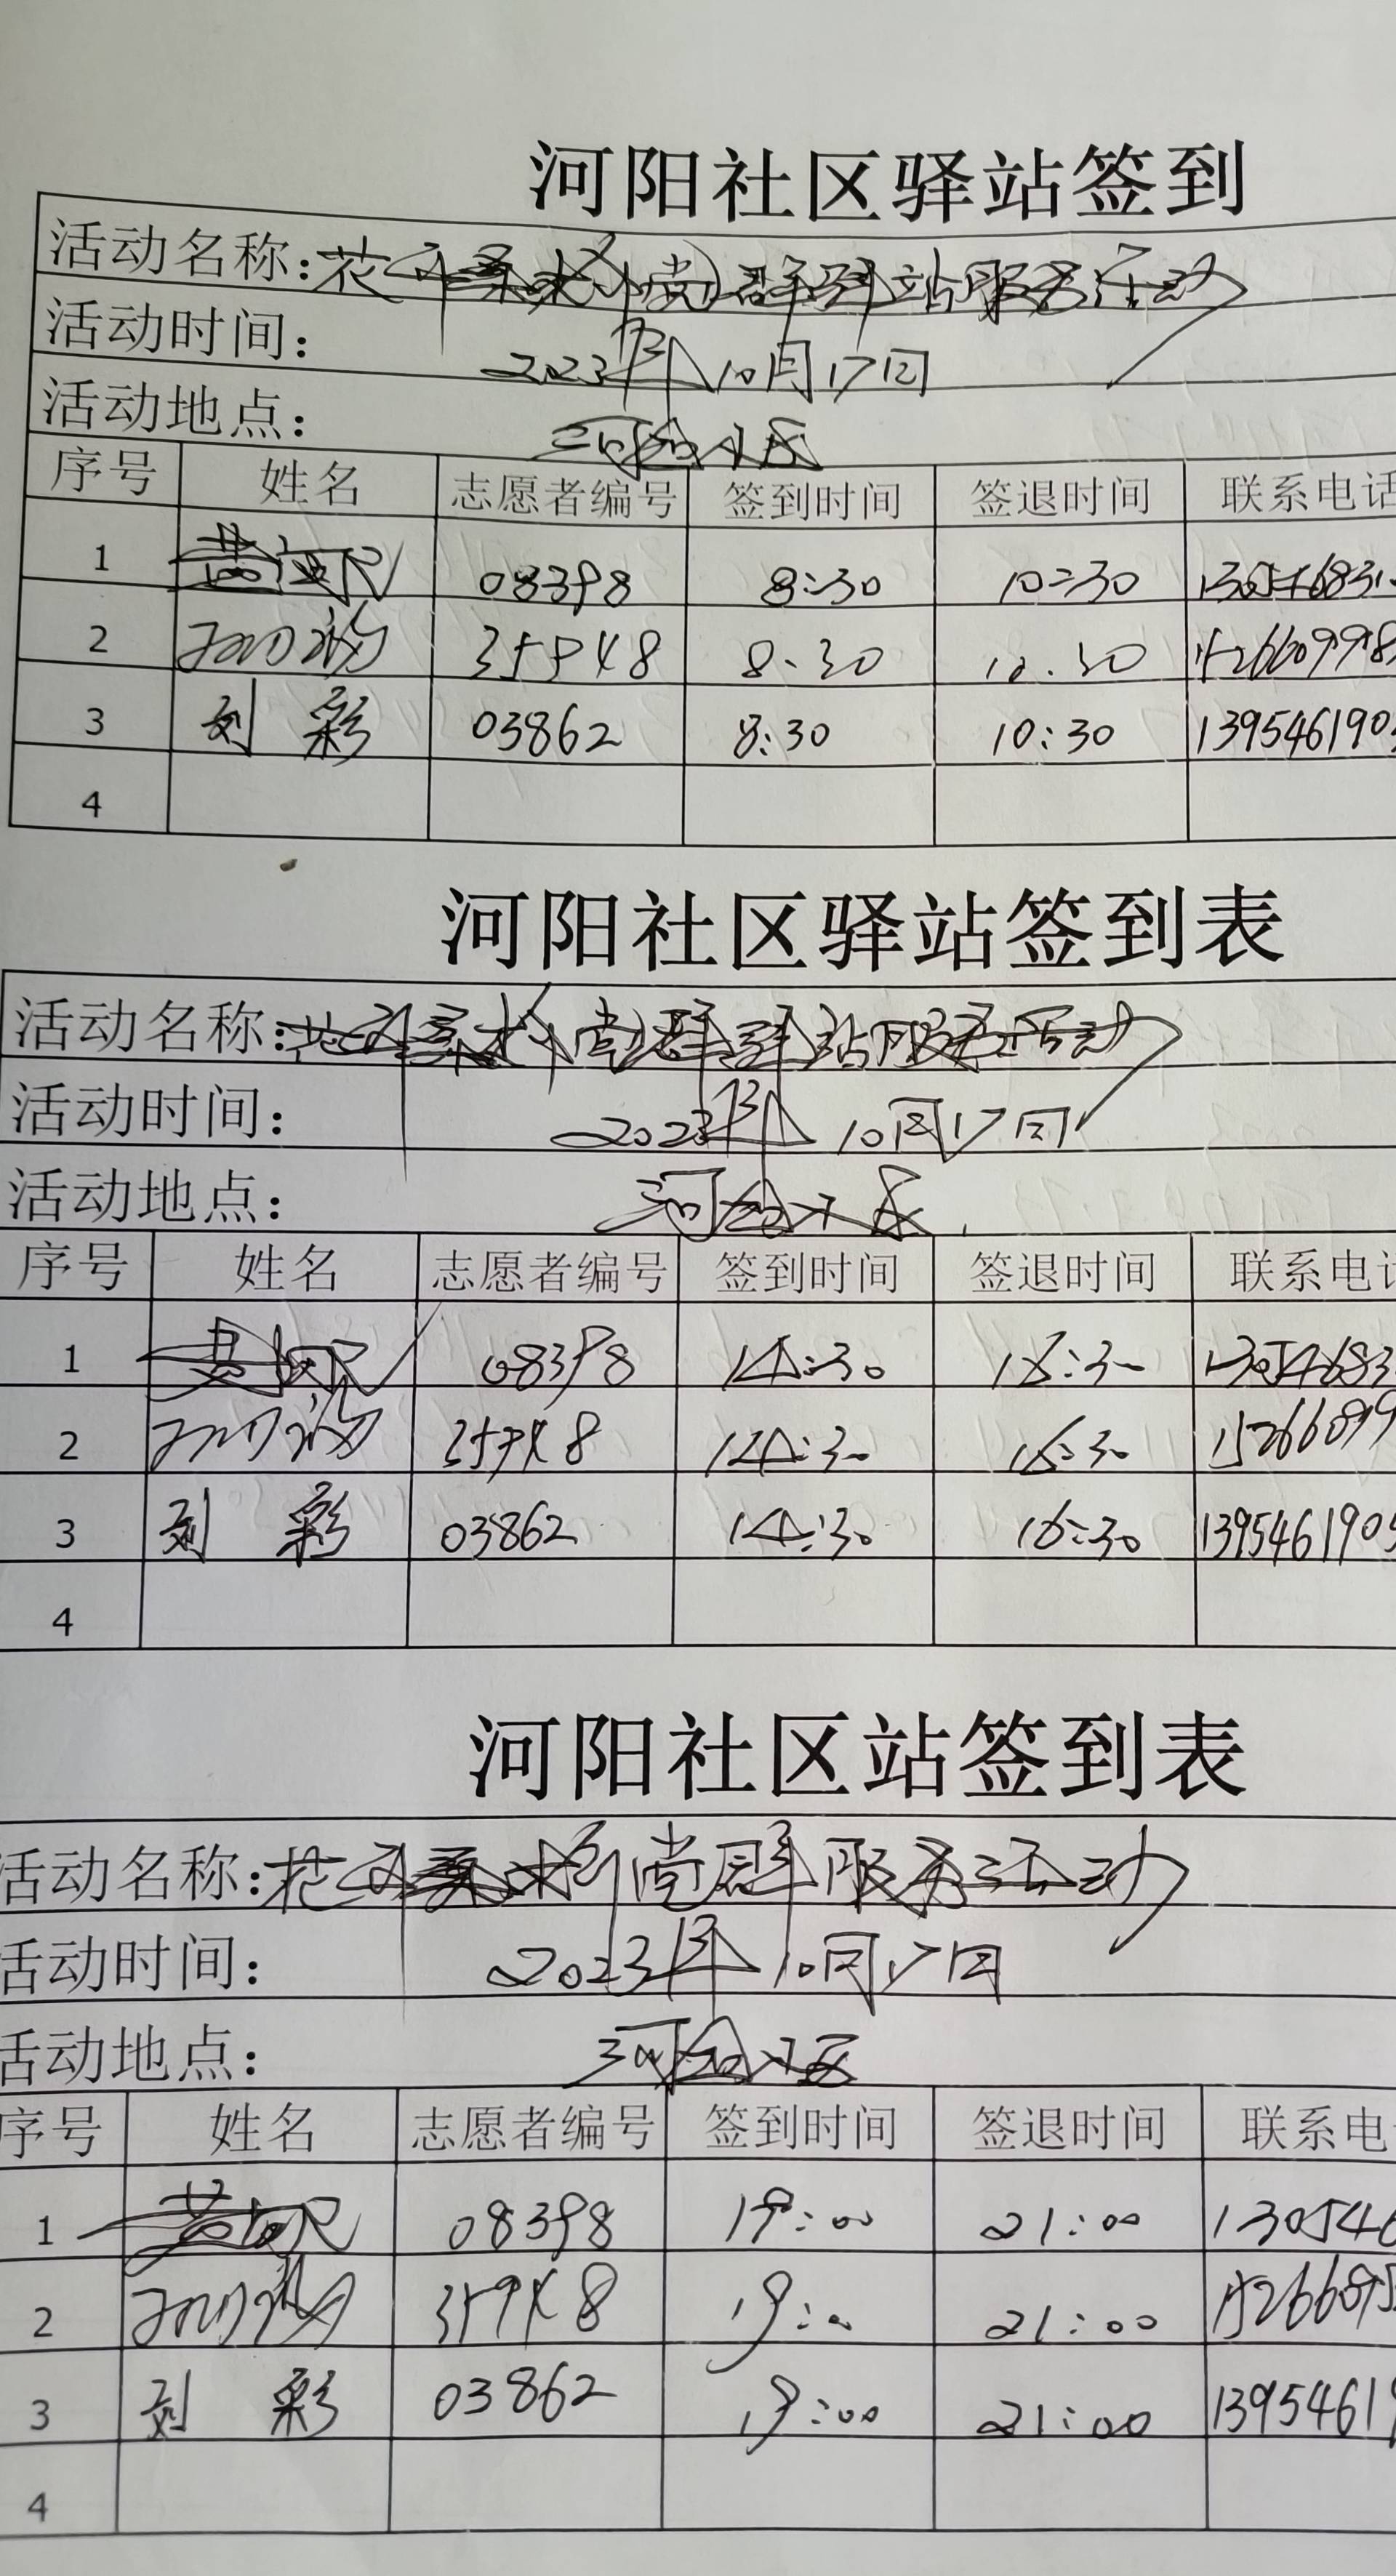 河阳社区驿站签到
活动名称:花 党群驿站服务活动
活动时间: 2023年10月17日
活动地点: 小区
序号 姓名 志愿者编号 签到时间 签退时间 联系电话
1 08398 8:30 10:30
2 35948 8:30 10:30
3 刘彩 03862 8:30 10:30 1395461905
4
河阳社区驿站签到表
活动名称:花 党群驿站服务活动
活动时间: 2023年10月17日
活动地点: 小区
序号 姓名 志愿者编号 签到时间 签退时间 联系电话
1 08398 14:30 16:30
2 35948 14:30 16:30
3 刘彩 03862 14:30 16:30 1395461905
4
河阳社区站签到表
活动名称:花 党群服务活动
活动时间: 2023年10月17日
活动地点: 小区
序号 姓名 志愿者编号 签到时间 签退时间 联系电
1 08398 19:00 21:00 130546
2 35948 19:00 21:00
3 刘彩 03862 19:00 21:00 13954619
4